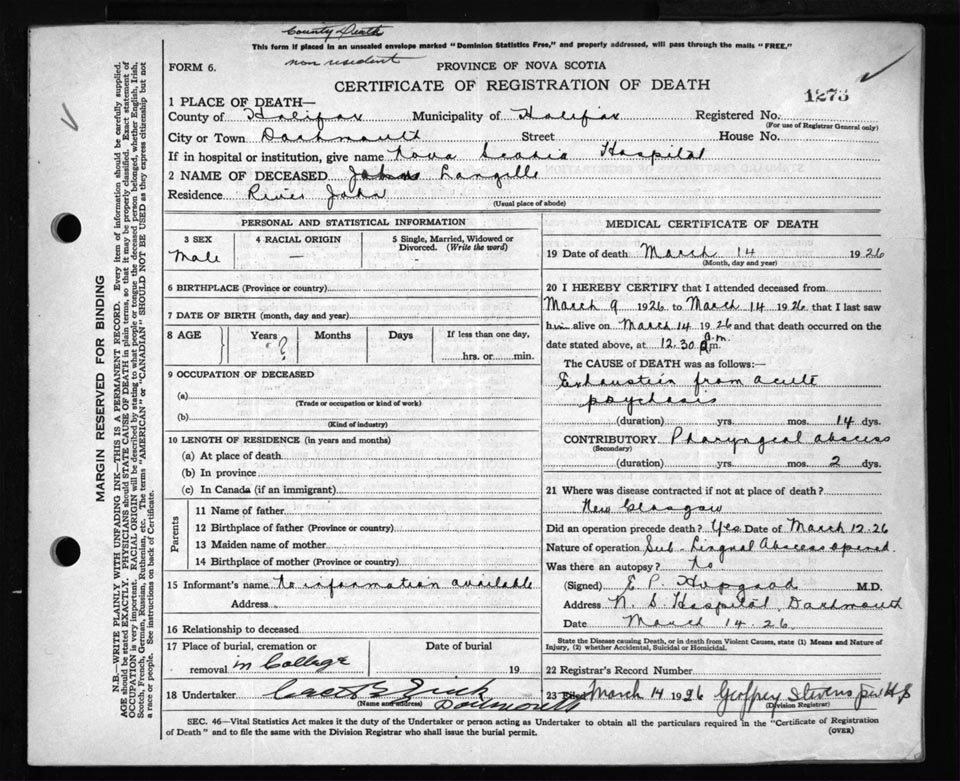 County Death
This form if placed in an unsealed envelope marked "Dominion Statistics Free," and properly addressed, will pass through the mails "FREE."
FORM 6.
non resident
PROVINCE OF NOVA SCOTIA
CERTIFICATE OF REGISTRATION OF DEATH
1273
1 PLACE OF DEATH—
County of Halifax Municipality of Halifax Registered No.
(For use of Registrar General only)
City or Town Dartmouth Street House No.
If in hospital or institution, give name Nova Scotia Hospital
2 NAME OF DECEASED John Langille
Residence River John
(Usual place of abode)
PERSONAL AND STATISTICAL INFORMATION
3 SEX
Male
4 RACIAL ORIGIN
—
5 Single, Married, Widowed or Divorced. (Write the word)
-
6 BIRTHPLACE (Province or country)
7 DATE OF BIRTH (month, day and year)
8 AGE Years Months Days If less than one day,
?
hrs. or min.
9 OCCUPATION OF DECEASED
(a)
(Trade or occupation or kind of work)
(b)
(Kind of industry)
10 LENGTH OF RESIDENCE (in years and months)
(a) At place of death
(b) In province
(c) In Canada (if an immigrant)
Parents
11 Name of father
12 Birthplace of father (Province or country)
13 Maiden name of mother
14 Birthplace of mother (Province or country)
15 Informant's name No information available
Address
16 Relationship to deceased
17 Place of burial, cremation or Date of burial
removal in College 19
18 Undertaker Zink
(Name and address) Dartmouth
MEDICAL CERTIFICATE OF DEATH
19 Date of death March 14 1926
(Month, day and year)
20 I HEREBY CERTIFY that I attended deceased from
March 9 1926 to March 14 1926 that I last saw
him alive on March 14 1926 and that death occurred on
date stated above, at 12.30 a.m.
The CAUSE of DEATH was as follows:
Exhaustion from acute
psychosis
(duration) yrs. mos. 14 dys.
CONTRIBUTORY Pharyngeal abscess
(Secondary)
(duration) yrs. mos. 2 dys.
21 Where was disease contracted if not at place of death?
New Glasgow
Did an operation precede death? Yes Date of March 12.26
Nature of operation Sub-Lingual Abscess opened.
Was there an autopsy? No
(Signed) E P. Hopgood M.D.
Address N. S. Hospital, Dartmouth
Date March 14.26
State the Disease causing Death, or in death from Violent Causes, state (1) Means and Nature of
Injury, (2) whether Accidental, Suicidal or Homicidal.
22 Registrar's Record Number
23 Filed March 14 1926 Geoffrey Stevens
(Division Registrar)
SEC. 46—Vital Statistics Act makes it the duty of the Undertaker or person acting as Undertaker to obtain all the particulars required in the "Certificate of Registration
of Death" and to file the same with the Division Registrar who shall issue the burial permit.
(OVER)
MARGIN RESERVED FOR BINDING
N.B.—WRITE PLAINLY WITH UNFADING INK—THIS IS A PERMANENT RECORD. Every item of information should be carefully supplied.
AGE should be stated EXACTLY. PHYSICIANS should STATE CAUSE OF DEATH in plain terms, so that it may be properly classified. Exact statement of
OCCUPATION is very important. RACIAL ORIGIN will be described by stating to what people or tongue the deceased person belonged, whether English, Irish,
Scotch, French, German, Russian, Ruthenian, etc. The terms "AMERICAN" or "CANADIAN" SHOULD NOT BE USED as they express citizenship but not
a race or people. See instructions on back of Certificate.